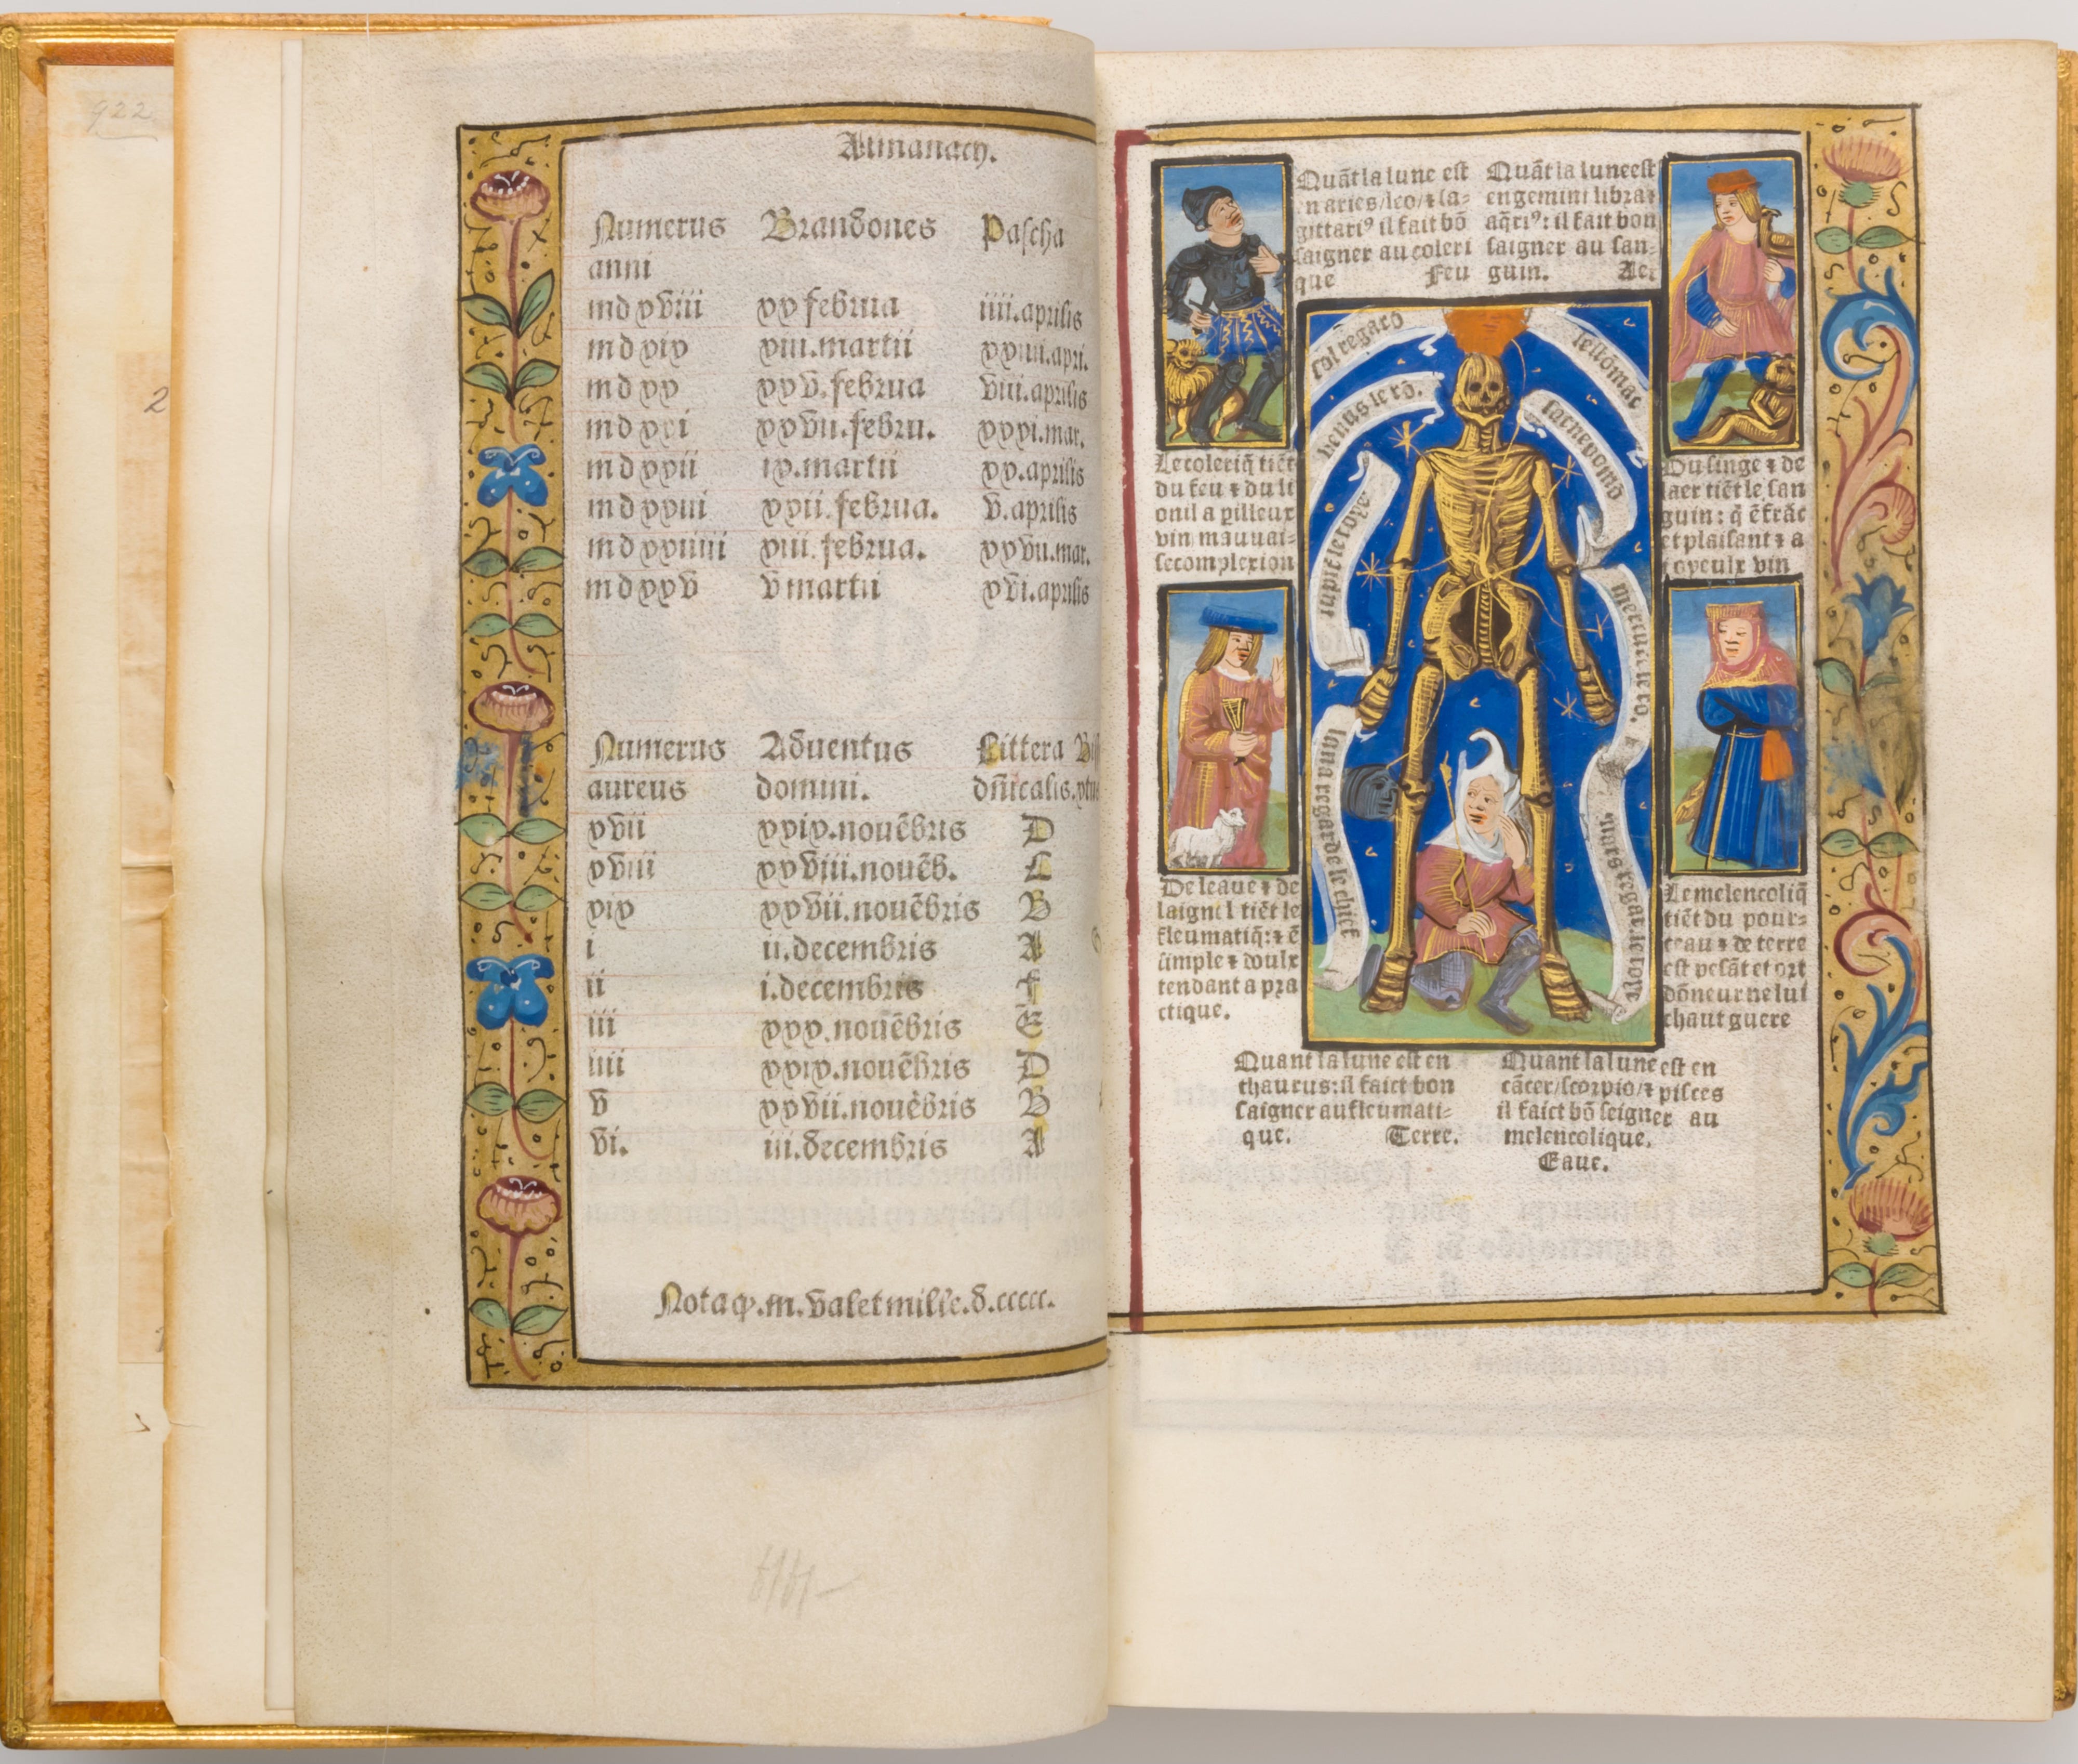 922
2
Almanach.
Numerus Brandones Pascha
anni
md xviii xx februa iiii.aprilis
md xix xiii.martii xxiiii.apri.
md xx xxv.februa viii.aprilis
md xxi xxvii.febru. xxxi.mar.
md xxii ix.martii xx.aprilis
md xxiii xxii.februa. v.aprilis
md xxiiii xiii.februa. xxvii.mar.
md xxv v martii xvi.aprilis
Numerus Aduentus Littera
aureus domini. dñicalis.
xvii xxix.nouẽbris D
xviii xxviii.nouẽb. C
xix xxvii.nouẽbris B
i ii.decembris A
ii i.decembris F
iii xxx.nouẽbris E
iiii xxix.nouẽbris D
v xxvii.nouẽbris B
vi. iii.decembris A
Nota ꝙ.m.valet mille.d.ccccc.
Quãt la lune est
n aries/leo/⁊ sa-
gittariꝰ il fait bõ
saigner au coleri
que Feu
Quãt la lune est
en gemini libra ⁊
aq̃riꝰ: il fait bon
saigner au san-
guin. Aer
Le coleriq̃ tiẽt
du feu ⁊ du li
on il a perilleux
vin mauuai-
se complexion
Du singe ⁊ de
laer tiẽt le san
guin: q̃ ẽ frãc
et plaisant ⁊ a
ioyeulx vin
sol regard
lestomac
venus le rõ.
jupiter le foye
mercure le rõ.
luna regarde le chief
mars regar. le foye
De leaue ⁊ de
laignel tiẽt le
fleumatiq̃: ⁊ ẽ
simple ⁊ doulx
tendant a pra
ctique.
Le melencoliq̃
tiẽt du pour-
ceau ⁊ de terre
est pesãt et ort
dõneur ne lui
chaut guere
Quant la lune est en
thaurus: il faict bon
saigner au fleumati-
que. Terre.
Quant la lune est en
cãcer/scorpio/⁊ pisces
il faict bõ seigner au
melencolique.
Eaue.